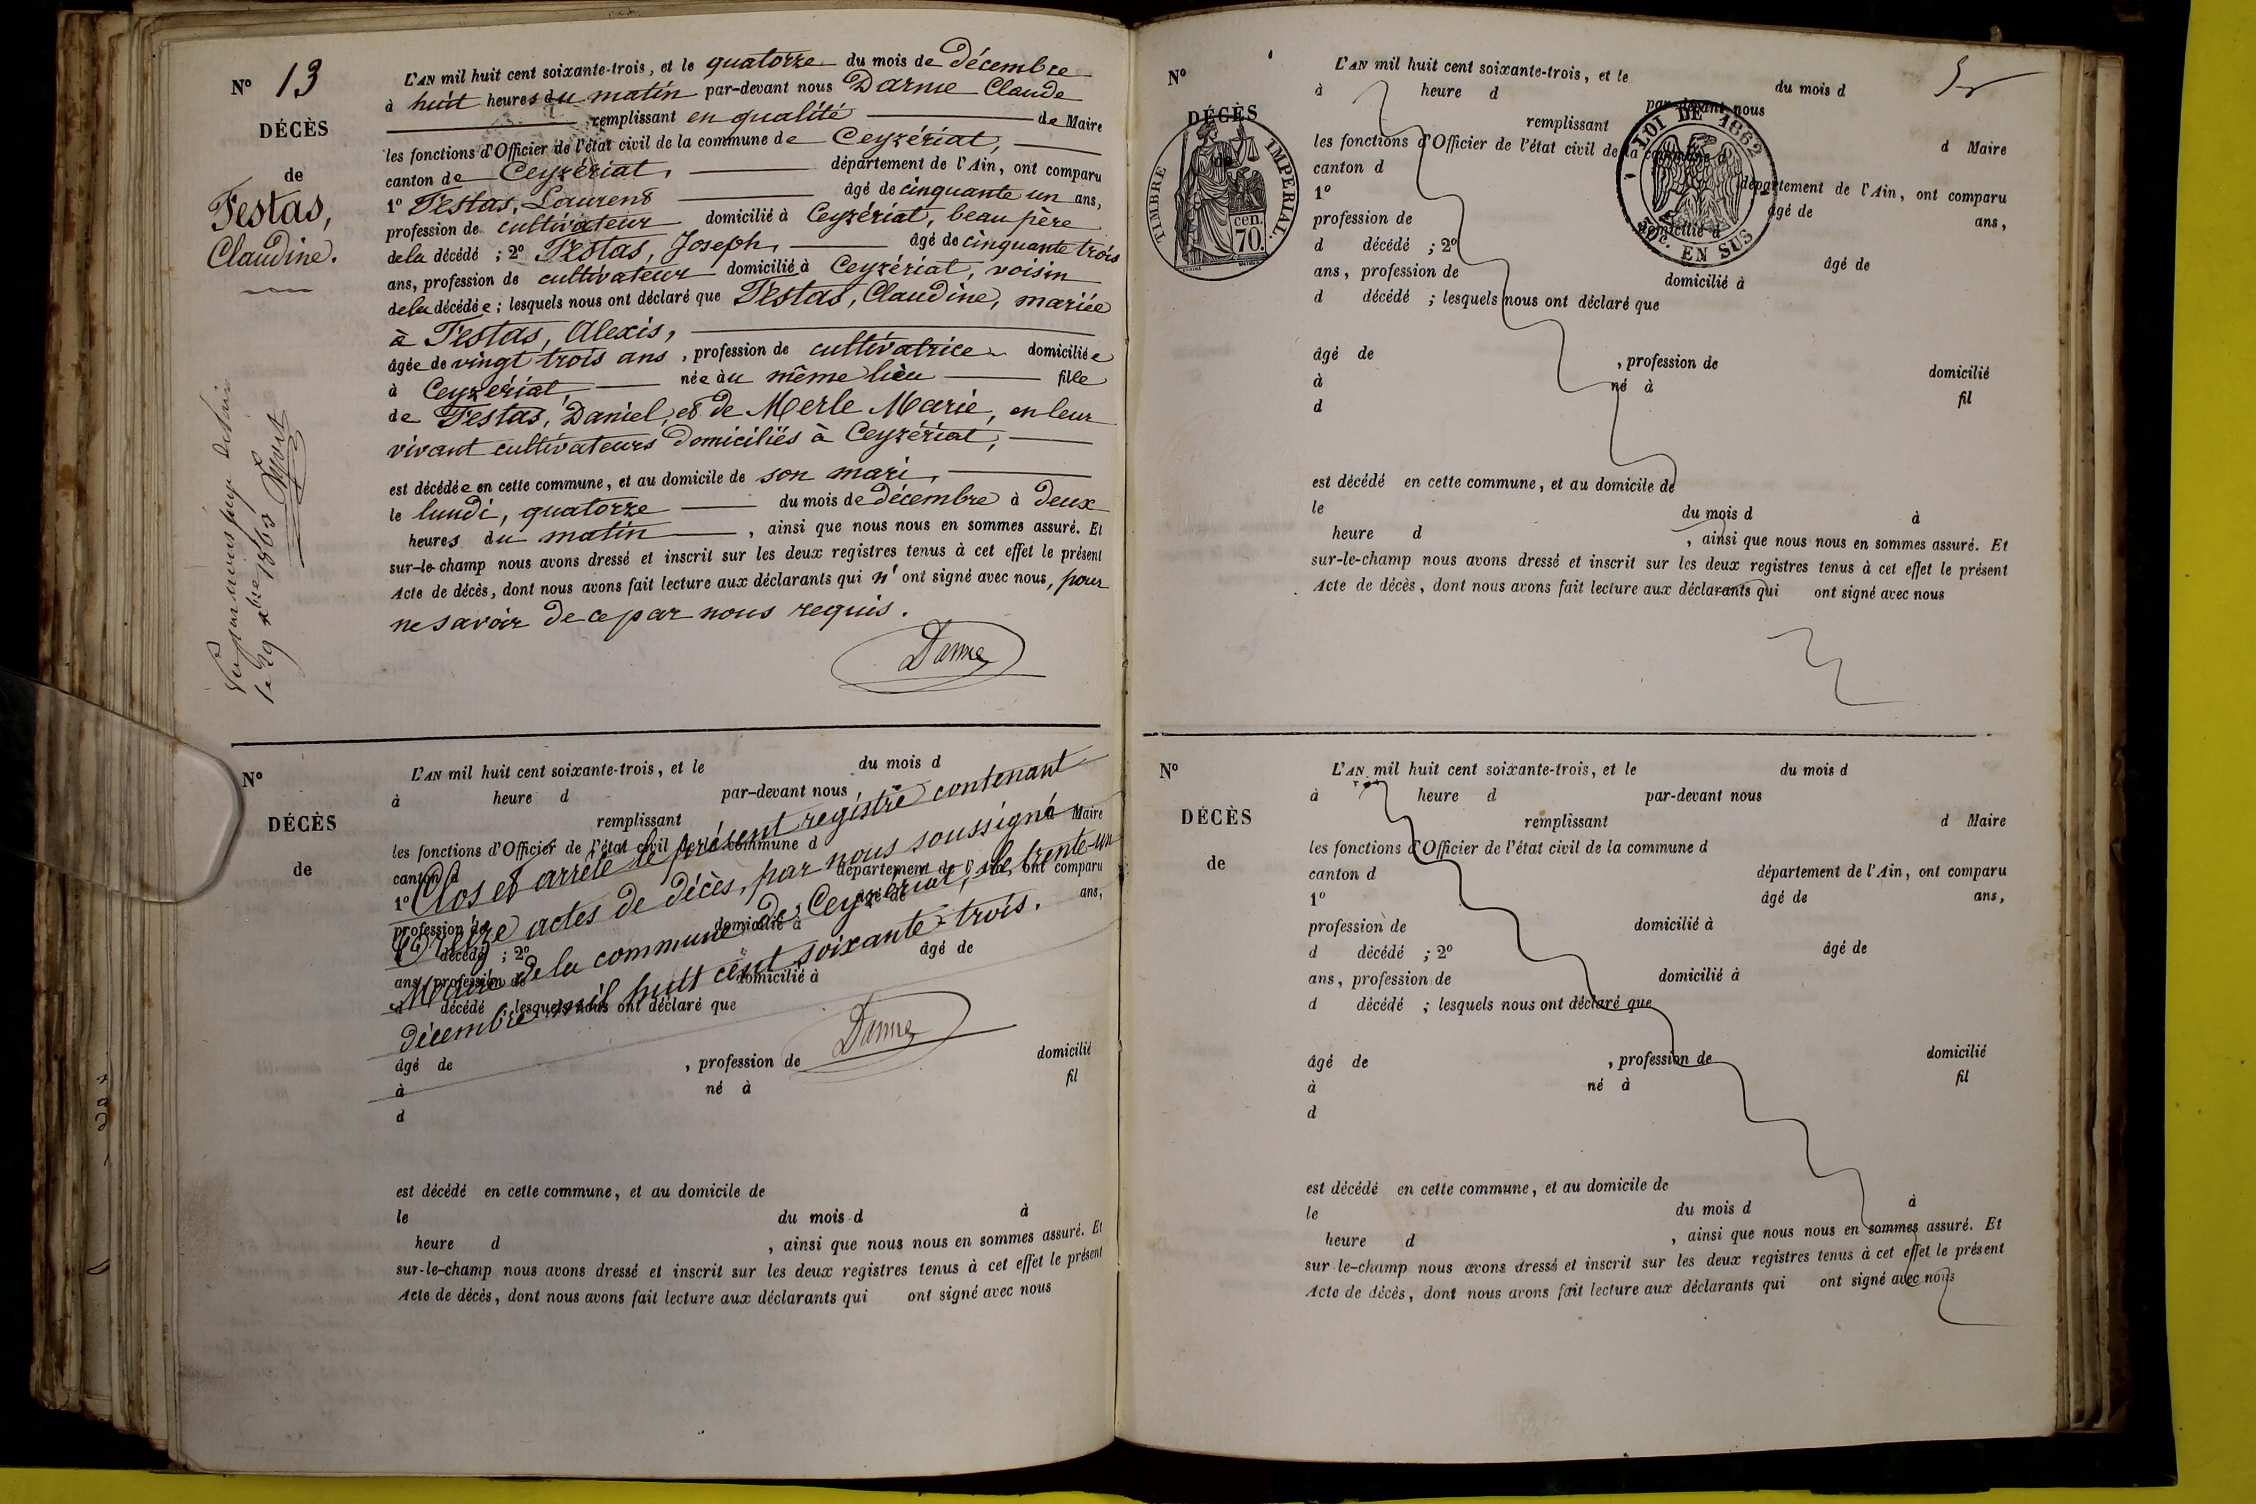 N° 13
DÉCÈS
de
Testas,
Claudine.
L'AN mil huit cent soixante-trois, et le quatorze du mois de Décembre
à huit heures du matin par-devant nous Darme Claude
remplissant en qualité de Maire
les fonctions d'Officier de l'état civil de la commune de Ceyzériat,
canton de Ceyzériat, département de l'Ain, ont comparu
1° Testas, Laurent âgé de cinquante un ans,
profession de cultivateur domicilié à Ceyzériat, beau père
de la décédé ; 2° Testas, Joseph, âgé de cinquante trois
ans, profession de cultivateur domicilié à Ceyzériat, voisin
de la décédée ; lesquels nous ont déclaré que Testas, Claudine, mariée
à Testas, Alexis,
âgée de vingt trois ans, profession de cultivatrice domiciliée
à Ceyzériat, née au même lieu fille
de Testas, Daniel, et de Merle Marie, en leur
vivant cultivateurs domiciliés à Ceyzériat,
est décédée en cette commune, et au domicile de son mari,
le lundi, quatorze du mois de décembre à deux
heures du matin, ainsi que nous nous en sommes assuré. Et
sur-le-champ nous avons dressé et inscrit sur les deux registres tenus à cet effet le présent
Acte de décès, dont nous avons fait lecture aux déclarants qui n'ont signé avec nous, pour
ne savoir de ce par nous requis.
Darme
le 29 xbre 1863
N°
DÉCÈS
de
L'AN mil huit cent soixante-trois, et le du mois d
à heure d par-devant nous
remplissant d Maire
les fonctions d'Officier de l'état civil de la commune d
canton d département de l'Ain, ont comparu
1° âgé de ans,
profession de domicilié à
d décédé ; 2° âgé de
ans, profession de domicilié à
d décédé ; lesquels nous ont déclaré que
Clos et arrêté le présent registre contenant
Treize actes de décès, par nous soussigné
Maire de la commune de Ceyzériat, le trente-un
décembre mil huit cent soixante-trois.
Darme
âgé de , profession de domicilié
à né à fil
d
est décédé en cette commune, et au domicile de
le du mois d à
heure d , ainsi que nous nous en sommes assuré. Et
sur-le-champ nous avons dressé et inscrit sur les deux registres tenus à cet effet le présent
Acte de décès, dont nous avons fait lecture aux déclarants qui ont signé avec nous
N°
DÉCÈS
de
TIMBRE IMPÉRIAL.
70 cen.
LOI DE 1862
EN SUS
L'AN mil huit cent soixante-trois, et le du mois d
à heure d par-devant nous
remplissant d Maire
les fonctions d'Officier de l'état civil de la commune d
canton d département de l'Ain, ont comparu
1° âgé de ans,
profession de domicilié à
d décédé ; 2° âgé de
ans, profession de domicilié à
d décédé ; lesquels nous ont déclaré que
âgé de , profession de domicilié
à né à fil
d
est décédé en cette commune, et au domicile de
le du mois d à
heure d , ainsi que nous nous en sommes assuré. Et
sur-le-champ nous avons dressé et inscrit sur les deux registres tenus à cet effet le présent
Acte de décès, dont nous avons fait lecture aux déclarants qui ont signé avec nous
N°
DÉCÈS
de
L'AN mil huit cent soixante-trois, et le du mois d
à heure d par-devant nous
remplissant d Maire
les fonctions d'Officier de l'état civil de la commune d
canton d département de l'Ain, ont comparu
1° âgé de ans,
profession de domicilié à
d décédé ; 2° âgé de
ans, profession de domicilié à
d décédé ; lesquels nous ont déclaré que
âgé de , profession de domicilié
à né à fil
d
est décédé en cette commune, et au domicile de
le du mois d à
heure d , ainsi que nous nous en sommes assuré. Et
sur-le-champ nous avons dressé et inscrit sur les deux registres tenus à cet effet le présent
Acte de décès, dont nous avons fait lecture aux déclarants qui ont signé avec nous